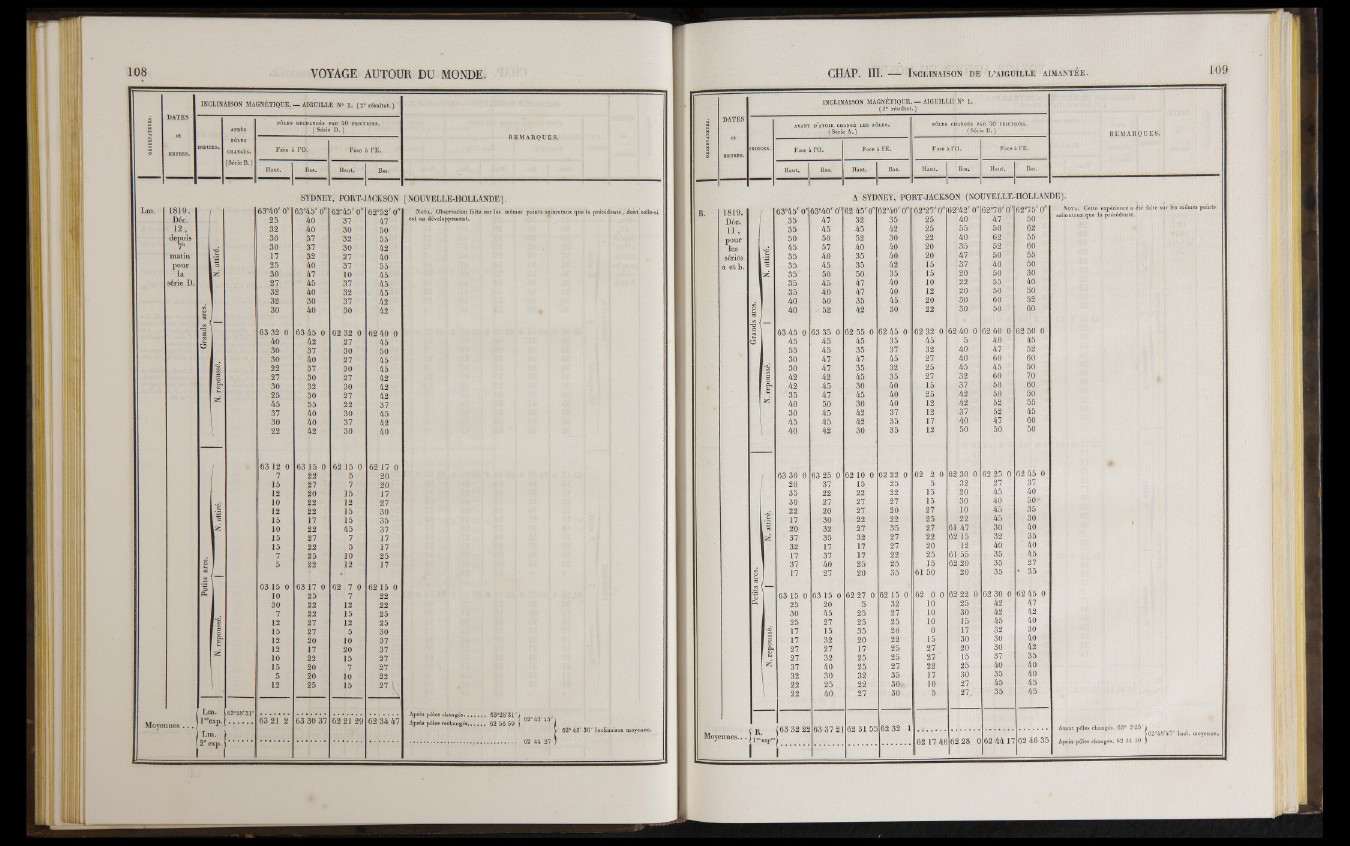 108 VOYAGE AUTOUR DU MONDE.
INCLINAISON MAGNÉTIQUE. — AIGUILLE N° 1. (2e résultat.)
OBSERVATEURS.
DATES et HEURES.
INDICES.
APRÈS PÔLES CHANGÉS. (Série B.)
PÔLES RECHANGÉS PAR 50 FRICTIONS. (Série D.)
Face à l'O. Face à l'E.
Haut. Bas. Haut. Bas.
REMARQUES.
SYDNEY, PORT-JACKSON (NOUVELLE-HOLLANDE).
Lm.
1819.
Déc.
12,
depuis
7h
matin
pour
la
série D.
Grands arcs.
N. attiré.
63°40' 0" 63°45' 0" 62°45' 0" 62°52' 0"
25 40 37 47
32 40 30 50
30 37 32 55
30 37 30 42
17 32 27 40
25 40 37 55
30 47 10 45
27 45 37 45
32 40 32 45
32 30 37 42
30 40 30 42
N. repoussé.
63 32 0 63 45 0 62 32 0 62 40 0
40 42 27 45
30 37 30 50
30 40 27 45
22 37 30 45
27 30 27 42
30 32 30 42
25 30 27 42
45 55 22 37
37 40 30 45
30 40 37 42
22 42 30 40
Petits arcs.
N. attiré.
63 12 0 63 15 0 62 15 0 62 17 0
7 22 5 20
15 27 7 20
12 20 15 17
10 22 12 27
12 22 15 30
15 17 15 35
10 22 45 37
15 27 7 17
15 22 5 17
7 25 10 25
5 22 12 17
N. repoussé.
63 15 0 63 17 0 62 7 0 62 15 0
10 25 7 22
30 22 12 22
7 22 15 25
12 27 12 25
15 27 5 30
12 20 10 37
12 17 20 37
10 22 15 27
15 20 7 27
5 20 10 22
12 25 15 27
Moyennes...
Lm. 1re exp. 63°28'31"
63 21 2 63 30 37 62 21 29 62 34 47
Lm. 2e exp.
NOTA. Observation faite sur les mêmes points agissteaux que la précédente, dont celle-ci
est un développement.
Après pôles changés....... 63°28'31"
Après pôles rechangés...... 62 56 59
62° 43' 15"
62 44 27
62° 43' 36" Inclinaison moyenne.
CHAP. III. — INCLINAISON DE L'AIGUILLE AIMANTÉE. 109
INCLINAISON MAGNÉTIQUE. — AIGUILLE N° 1.
(3e résultat.)
OBSERVATEURS.
DATES et HEURES.
INDICES.
AVANT D'AVOIR CHANGÉ LES PÔLES. (Série A.)
PÔLES CHANGÉS PAR 50 FRICTIONS. (Série B.)
Face à l'O. Face à l'E. Face à l'O. Face à l'E.
Haut. Bas. Haut. Bas. Haut. Bas. Haut. Bas.
REMARQUES.
A SYDNEY, PORT-JACKSON (NOUVELLE-HOLLANDE).
R.
1819.
Déc.
11,
pour
les
séries
a et b.
Grands arcs.
N. attiré.
63°45' 0" 63°40' 0" 62 45' 0" 62°40' 0" 62°27' 0" 62°42' 0" 62°70' 0" 62°75' 0"
35 47 32 35 25 40 47 50
35 45 45 42 25 55 50 62
50 50 52 50 22 40 62 55
45 57 40 40 20 35 52 60
35 40 35 40 20 47 50 55
35 45 35 42 15 37 40 50
35 50 50 35 15 20 50 30
35 45 47 40 10 22 55 40
35 40 47 40 12 20 50 50
40 50 35 45 20 30 60 52
40 52 42 30 22 30 50 60
N. repoussé.
63 45 0 63 35 0 62 55 0 62 45 0 62 32 0 62 40 0 62 60 0 62 50 0
45 45 45 35 45 5 40 45
55 45 35 37 32 40 47 52
30 47 47 45 27 40 60 60
30 47 35 32 25 45 45 50
42 42 45 35 27 32 60 70
42 45 30 40 15 37 50 60
35 47 45 40 25 42 50 50
40 50 30 40 12 42 52 55
30 45 42 37 12 37 52 45
45 45 42 35 17 40 47 60
40 42 30 35 12 50 50 50
Petits arcs.
N. attiré.
63 30 0 63 25 0 62 10 0 62 22 0 62 2 0 62 30 0 62 25 0 62 45 0
20 37 15 25 5 32 27 37
35 22 22 22 15 20 45 40
30 27 27 27 15 30 40 50
22 20 27 20 27 10 45 35
17 30 22 22 25 22 45 30
20 32 27 35 27 61 47 30 40
37 35 32 27 22 62 15 32 35
32 17 17 27 20 12 40 40
17 37 17 22 25 61 55 35 45
37 40 25 25 15 62 20 35 27
17 27 20 35 61 50 20 35 35
N. repoussé.
63 15 0 63 15 0 62 27 0 62 15 0 62 0 0 62 22 0 62 30 0 62 45 0
25 20 5 32 10 25 42 47
30 45 25 27 10 30 42 42
25 27 25 25 10 15 45 40
17 15 35 20 0 17 32 30
17 32 20 22 15 30 30 40
27 27 17 25 27 20 30 42
27 32 25 25 27 15 37 35
37 40 25 27 22 25 40 40
32 30 32 35 17 30 35 40
22 25 22 30 10 27 45 45
22 40 27 30 5 27 35 45
Moyennes... R. 1re exp.
63 32 22 63 37 21 62 31 55 62 32 1
62 17 46 62 28 0 62 44 17 62 46 35
NOTA. Cette expérience a été faite sur les mêmes points
que la précédente.
Avant pôles changés. 63° 3'25"
Après pôles changés. 62 34 10
62°48'47" Incl. moyenne.